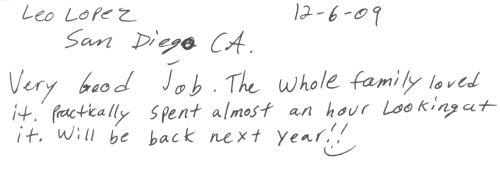 Leo Lopez 12-6-09
San Diego CA.
Very Good Job. The whole family loved
it. Practically spent almost an hour Looking at
it. Will be back next year!!